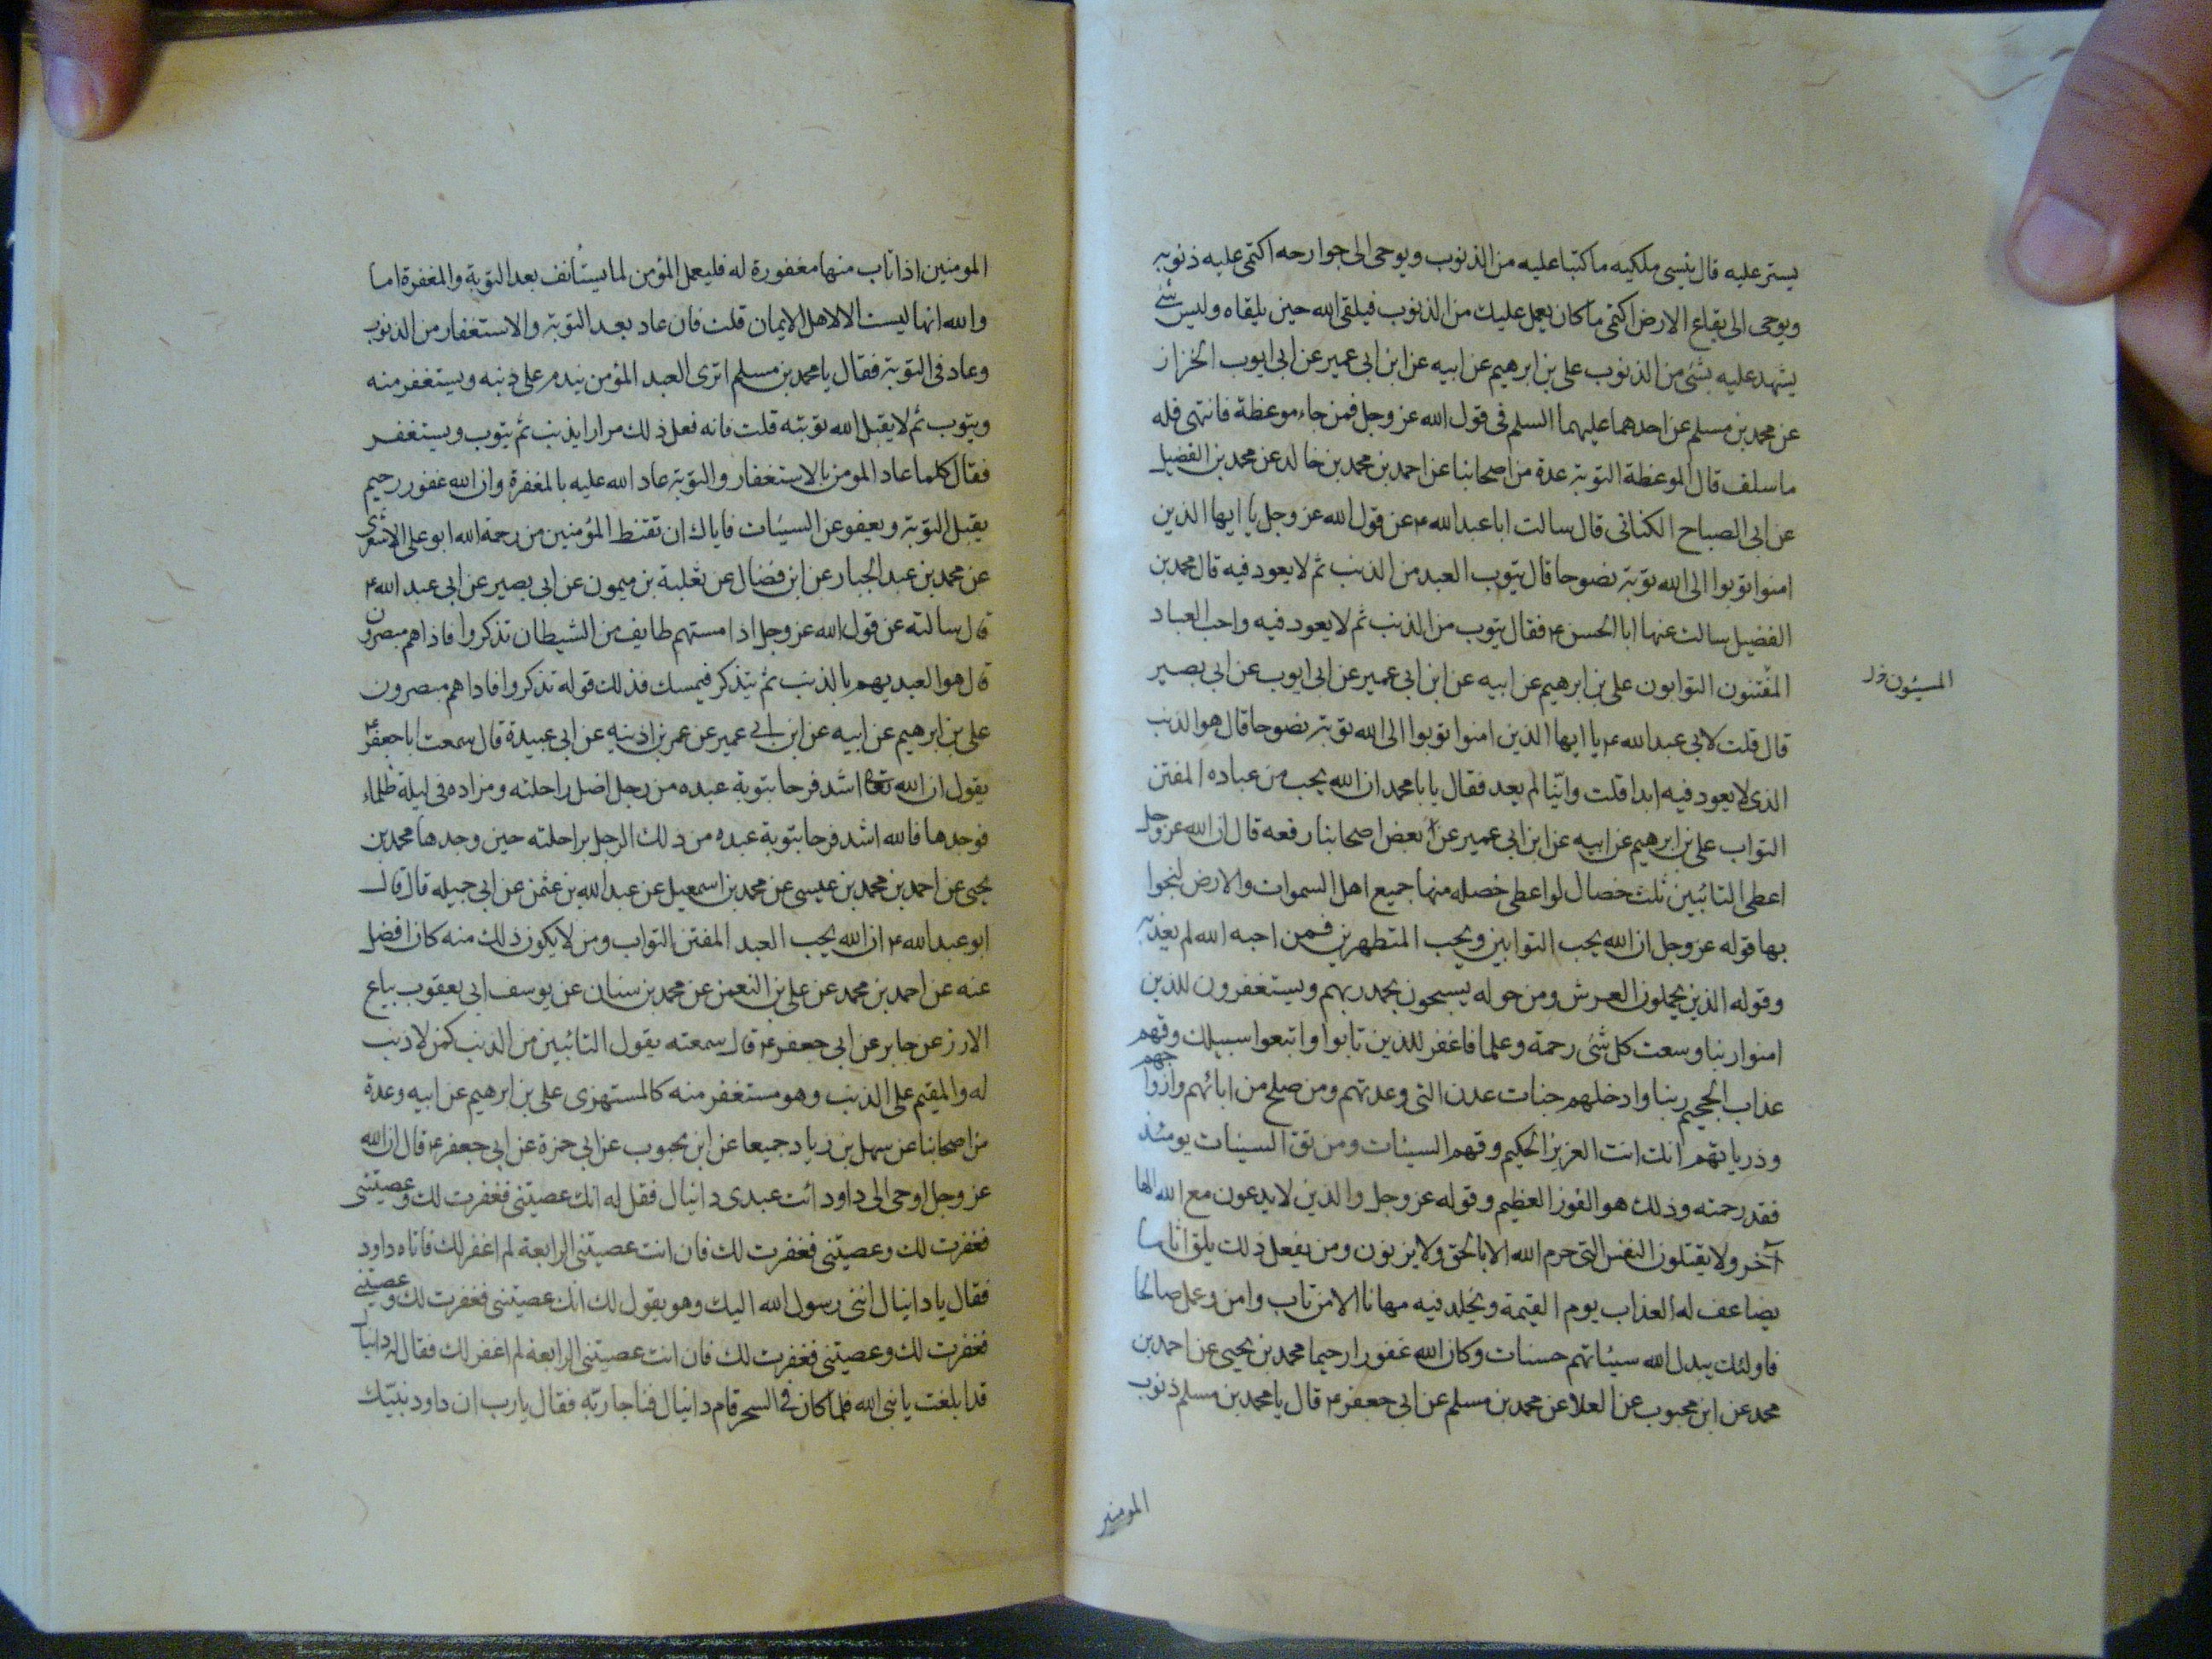 يستر عليه قال ينسى ملكيه ما كتبا عليه من الذنوب ويوحى الى جوارحه اكتمى عليه ذنوبه
ويوحى الى بقاع الارض اكتمى ما كان يعمل عليك من الذنوب فيلقى الله حين يلقاه وليس شئ
يشهد عليه بشئ من الذنوب على بن ابرهيم عن ابيه عن ابن ابى عمير عن ابى ايوب الخزاز
عن محمد بن مسلم عن احدهما عليهما السلم فى قول الله عز وجل فمن جاء موعظة فانتهى فله
ما سلف قال الموعظة التوبة عدة من اصحابنا عن احمد بن محمد بن خالد عن محمد بن الفضيل
عن ابى الصباح الكنانى قال سالت ابا عبد الله ع عن قول الله عز وجل يا ايها الذين
امنوا توبوا الى الله توبة نصوحا قال يتوب العبد من الذنب ثم لا يعود فيه قال محمد بن
الفضيل سالت عنها ابا الحسن ع فقال يتوب من الذنب ثم لا يعود فيه واحب العباد
المفتنون التوابون على بن ابرهيم عن ابيه عن ابن ابى عمير عن ابى ايوب عن ابى بصير
قال قلت لابى عبد الله ع يا ايها الذين امنوا توبوا الى الله توبة نصوحا قال هو الذنب
الذى لا يعود فيه ابدا قلت وايّنا لم يعد فقال يا با محمد ان الله يحب من عباده المفتن
التواب على بن ابرهيم عن ابيه عن ابن ابى عمير عن بعض اصحابنا رفعه قال ان الله عز وجل
اعطى التائبين ثلث خصال لو اعطى خصله منها جميع اهل السموات والارض لنجوا
بها قوله عز وجل ان الله يحب التوابين ويحب المتطهرين فمن احبه الله لم يعذبه
وقوله الذين يحملون العرش ومن حوله يسبحون بحمد ربهم ويستغفرون للذين
امنوا ربنا وسعت كل شئ رحمة وعلما فاغفر للذين تابوا واتبعوا سبيلك وقهم
عذاب الجحيم ربنا وادخلهم جنات عدن التى وعدتهم ومن صلح من ابائهم وازواجهم
وذرياتهم انك انت العزيز الحكيم وقهم السيئات ومن تق السيئات يومئذ
فقد رحمته وذلك هو الفوز العظيم وقوله عز وجل والذين لا يدعون مع الله الها
آخر ولا يقتلون النفس التى حرم الله الا بالحق ولا يزنون ومن يفعل ذلك يلق اثاما
يضاعف له العذاب يوم القيمة ويخلد فيه مهانا الا من تاب وامن وعمل صالحا
فاولئك يبدل الله سيئاتهم حسنات وكان الله غفورا رحيما محمد بن يحيى عن احمد بن
محمد عن ابن محبوب عن العلا عن محمد بن مسلم عن ابى جعفر ع قال يا محمد بن مسلم ذنوب
المومنين
المومنين اذا تاب منها مغفورة له فليعمل المؤمن لما يستأنف بعد التوبة والمغفرة اما
والله انها ليست الا لاهل الايمان قلت فان عاد بعد التوبة والاستغفار من الذنوب
وعاد فى التوبة فقال يا محمد بن مسلم اترى العبد المؤمن يندم على ذنبه ويستغفر منه
ويتوب ثم لا يقبل الله توبته قلت فانه فعل ذلك مرارا يذنب ثم يتوب ويستغفر
فقال كلما عاد المومن بالاستغفار والتوبة عاد الله عليه بالمغفرة وان الله غفور رحيم
يقبل التوبة ويعفو عن السيئات فاياك ان تقنط المؤمنين من رحمة الله ابو على الاشعرى
عن محمد بن عبد الجبار عن ابن فضال عن ثعلبة بن ميمون عن ابى بصير عن ابى عبد الله ع
قال سالته عن قول الله عز وجل اذا مستهم طايف من الشيطان تذكروا فاذا هم مبصرون
قال هو العبد يهم بالذنب ثم يتذكر فيمسك فذلك قوله تذكروا فاذا هم مبصرون
على بن ابرهيم عن ابيه عن ابن ابى عمير عن عمر بن اذينه عن ابى عبيدة قال سمعت ابا جعفر ع
يقول ان الله اشد فرحا بتوبة عبده من رجل اضل راحلته ومزاده فى ليلة ظلماء
فوجدها فالله اشد فرحا بتوبة عبده من ذلك الرجل براحلته حين وجدها محمد بن
يحيى عن احمد بن محمد بن عيسى عن محمد بن اسمعيل عن عبد الله بن عثمن عن ابى جميله قال قال
ابو عبد الله ع ان الله يحب العبد المفتن التواب ومن لا يكون ذلك منه كان افضل
عنه عن احمد بن محمد عن على بن النعمن عن محمد بن سنان عن يوسف ابى يعقوب بياع
الارز عن جابر عن ابى جعفر ع قال سمعته يقول التائبين من الذنب كمن لا ذنب
له والمقيم على الذنب وهو مستغفر منه كالمستهزى على بن ابرهيم عن ابيه وعدة
من اصحابنا عن سهل بن زياد جميعا عن ابن محبوب عن ابى حمزة عن ابى جعفر ع قال ان الله
عز وجل اوحى الى داود ائت عبدى دانيال فقل له انك عصيتنى فغفرت لك وعصيتنى
فغفرت لك وعصيتنى فغفرت لك فان انت عصيتنى الرابعة لم اغفر لك فاتاه داود
فقال يا دانيال اننى رسول الله اليك وهو يقول لك انك عصيتنى فغفرت لك وعصيتنى
فغفرت لك وعصيتنى فغفرت لك فان انت عصيتنى الرابعة لم اغفر لك فقال له دانيال
قد ابلغت يا نبى الله فلما كان فى السحر قام دانيال فناجا ربّه فقال يا رب ان داود نبيّك